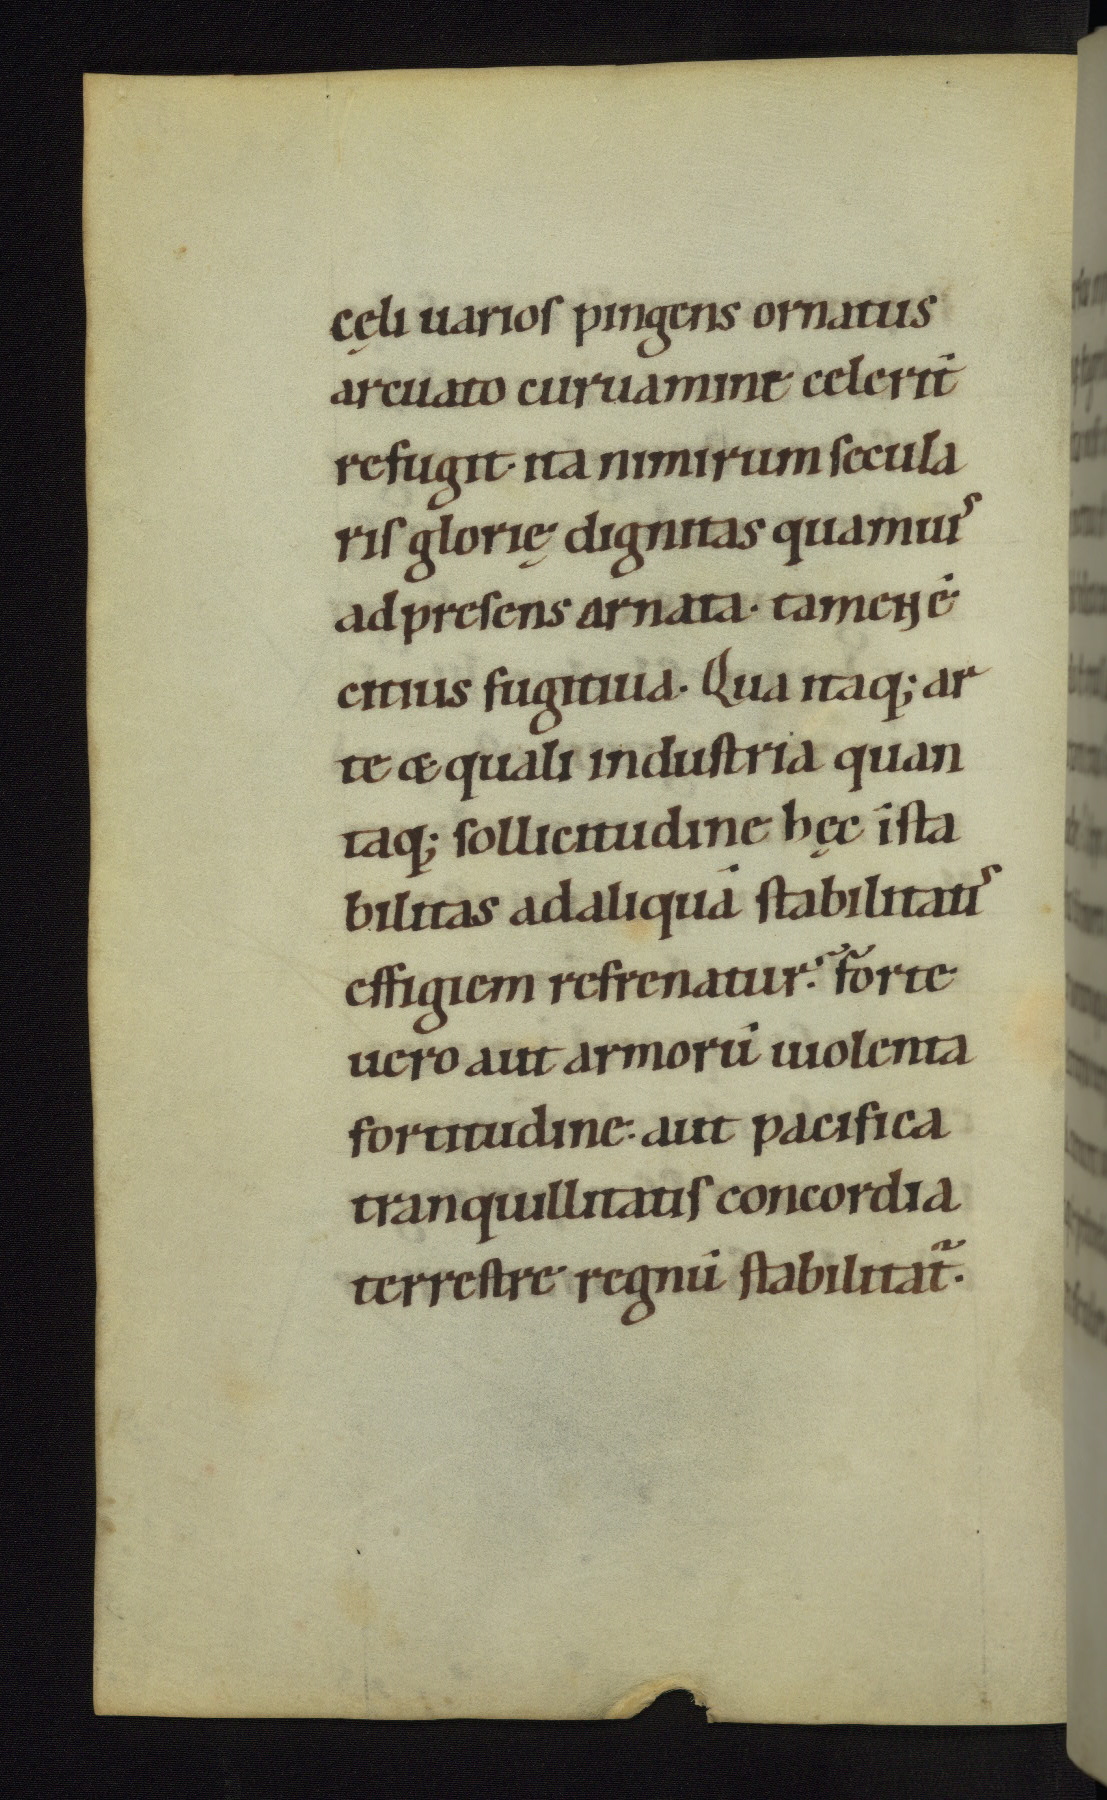 cęli uarios pingens ornatus
arcuato curuamine celerit̄
refugit· ita nimirum secula
ris glorię dignitas quamuis
ad presens ornata· tamen ē
citius fugitiua· Qua itaq; ar
te æquali industria quan
taq; sollicitudine hęc īsta
bilitas ad aliquā stabilitatis
effigiem refrenatur·̃ forte
uero aut armorū uiolenta
fortitudine· aut pacifica
tranquillitatis concordia
terrestre regnū stabilitat̃·